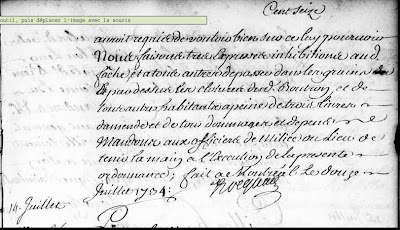 Cent Seize
outil, puis déplacer l'image avec la souris
auroit requis de vouloir bien sur ce luy pourvoir
Nous faisons tres expresses inhibitions aud.
fâché et a tous autres de passer dans les grains
de sur les clotures dud. Boutron, et de
tous autres habitants a peine de trois livres
damende et de tous dommages et depens
Mandons aux officiers de Milice du lieu de
tenir la main a l'Execution de la presente
ordonnance; fait a Montréal Le douze
Juillet 1734:
14. Juillet